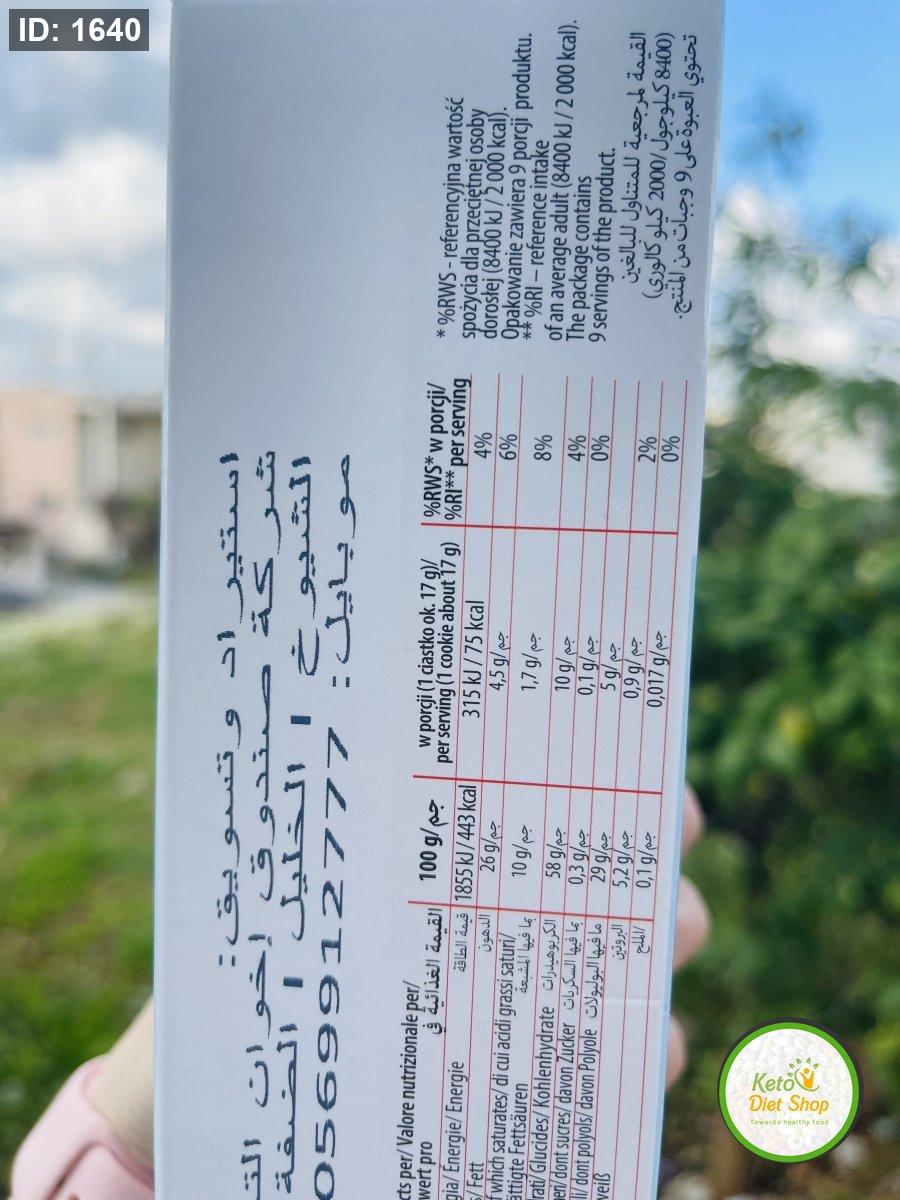 ID: 1640
استيراد و تسويق:
شركة صندوق إخوان الت
الشيوخ ا الخليل ا الضفة
موبايل: 0569912777
cts per/ Valore nutrizionale per/
wert pro
القيمة الغذائية في
100 g/جم
w porcji (1 ciastko ok. 17 g)/
per serving (1 cookie about 17 g)
%RWS* w porcji/
%RI** per serving
gia/ Energie/ Energie قيمة الطاقة 1855 kJ / 443 kcal 315 kJ / 75 kcal 4%
s/ Fett الدهون 26 g/جم 4,5 g/جم 6%
f which saturates/ di cui acidi grassi saturi/
ättigte Fettsäuren بما فيها المشبعة 10 g/جم 1,7 g/جم 8%
rati/ Glucides/ Kohlenhydrate الكربوهيدرات 58 g/جم 10 g/جم 4%
eri/ dont sucres/ davon Zucker بما فيها السكريات 0,3 g/جم 0,1 g/جم 0%
li/ dont polyols/ davon Polyole مافيها البوليولات 29 g/جم 5 g/جم
weiß البروتين 5,2 g/جم 0,9 g/جم 2%
الملح/ 0,1 g/جم 0,017 g/جم 0%
* %RWS - referencyjna wartość
spożycia dla przeciętnej osoby
dorosłej (8400 kJ / 2 000 kcal).
Opakowanie zawiera 9 porcji produktu.
** %RI – reference intake
of an average adult (8400 kJ / 2 000 kcal).
The package contains
9 servings of the product.
القيمة لمرجعية للمتناول للبالغين
(8400 كيلوجول/2000 كيلو كالوري)
تحتوي العبوة على 9 وجبات من المنتج.
Keto
Diet Shop
Towards healthy food